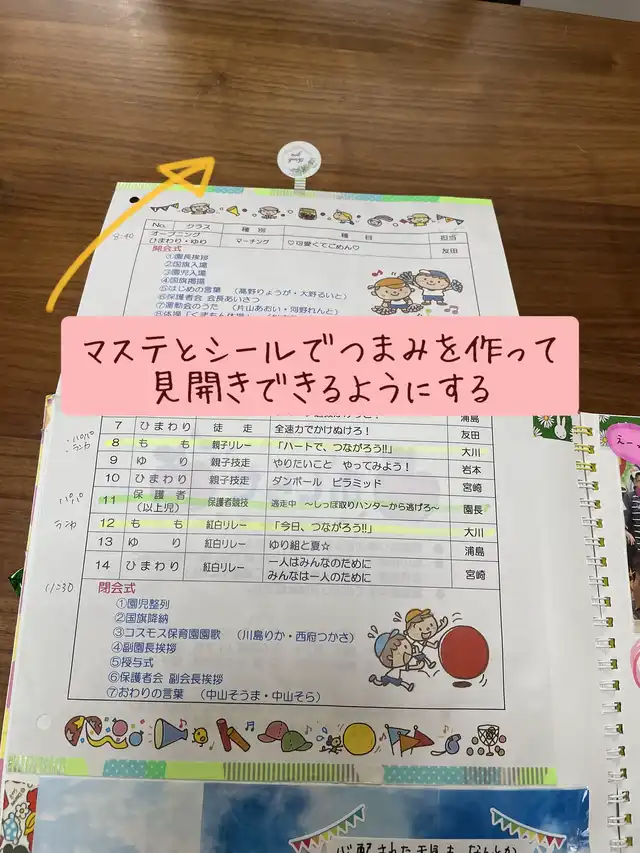 No. クラス 種別 種目 担当
オープニング
ひまわり・ゆり マーチング ♡可愛くてごめん♡ 友田
8:40
開会式
①園長挨拶
②国旗入場
③園児入場
④国旗掲揚
⑤はじめの言葉 (髙野りょうが・大野るいと)
⑥保護者会 会長あいさつ
⑦運動会のうた (片山あおい・河野れんと)
マステとシールでつまみを作って
見開きできるようにする
浦島
7 ひまわり 徒走 全速力でかけぬけろ! 友田
8 もも 親子リレー 「ハートで、つながろう!!」 大川
9 ゆり 親子技走 やりたいこと やってみよう! 岩本
10 ひまわり 親子技走 ダンボール ピラミッド 宮崎
11 保護者(以上児) 保護者競技 逃走中 ～しっぽ取りハンターから逃げろ～ 園長
12 もも 紅白リレー 「今日、つながろう!!」 大川
13 ゆり 紅白リレー ゆり組と夏☆ 浦島
14 ひまわり 紅白リレー 一人はみんなのために
みんなは一人のために 宮崎
11:30
閉会式
①園児整列
②国旗降納
③コスモス保育園園歌 (川島りか・西府つかさ)
④副園長挨拶
⑤授与式
⑥保護者会 副会長挨拶
⑦おわりの言葉 (中山そうま・中山そら)